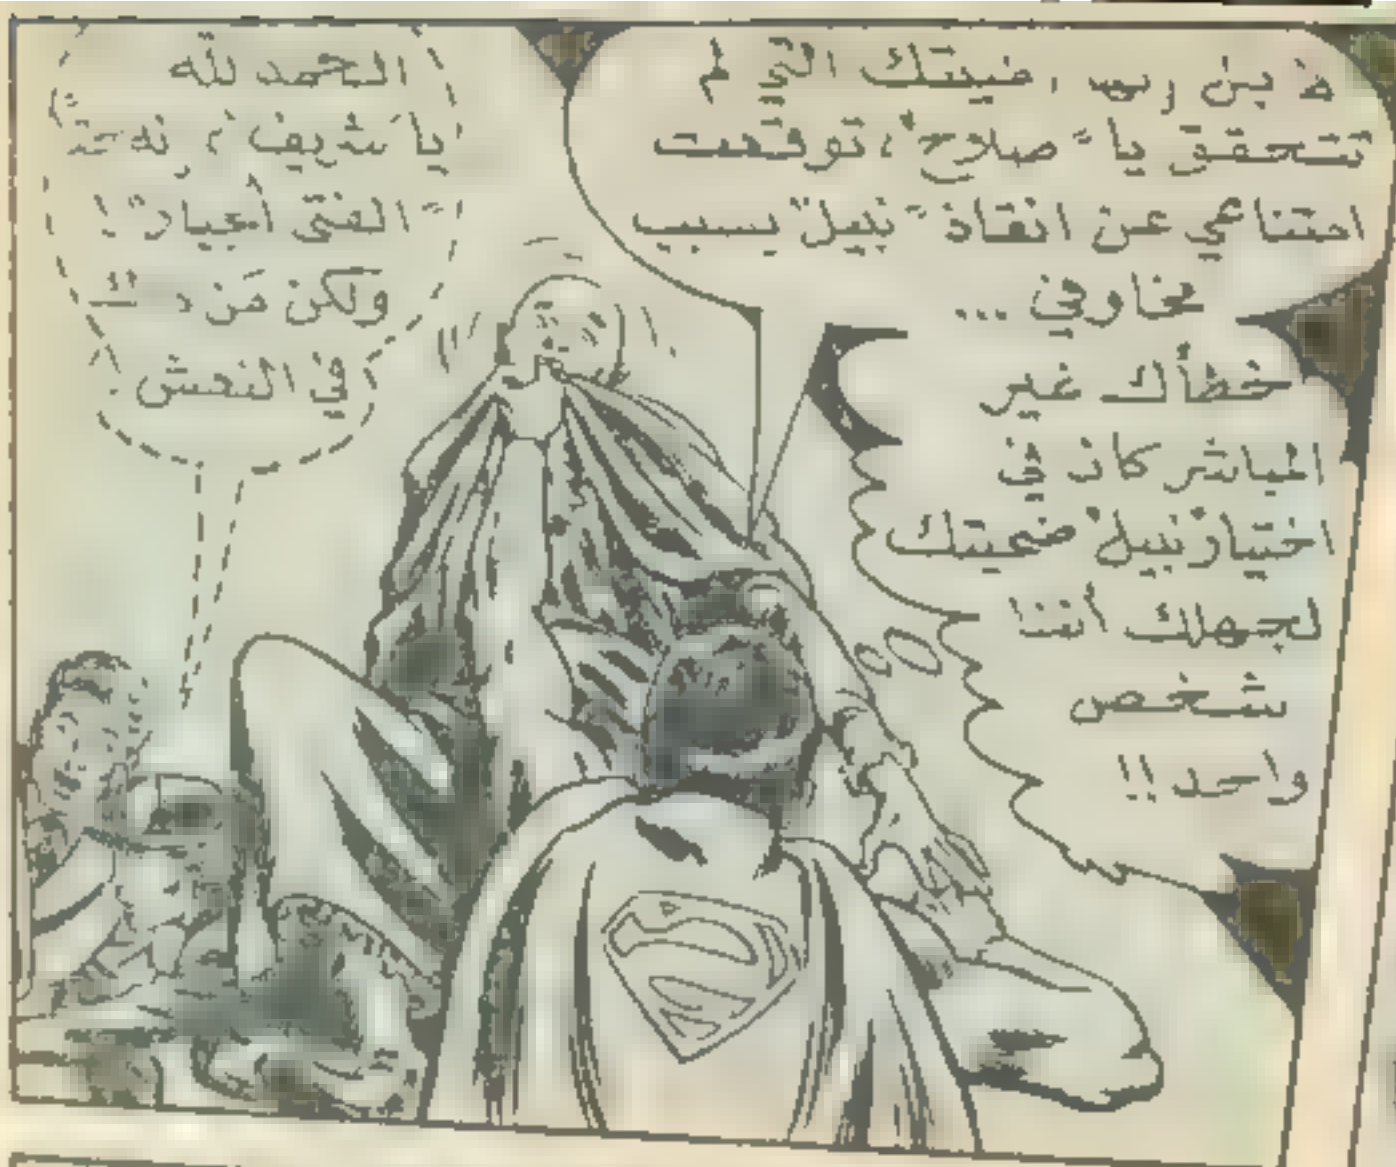 ضيتك التي لم
تتحقق يا "صلاح"، توقعت
امتناعي عن انقاذ "نبيل" بسبب
مخاوفي ...
خطأك غير
المباشر كان في
اختيار "نبيل" ضحيتك
لجهلك أننا
شخص
واحد!!
الحمد لله
يا "شريف"،
"الفتى الجبار"!
ولكن مَن
في النعش